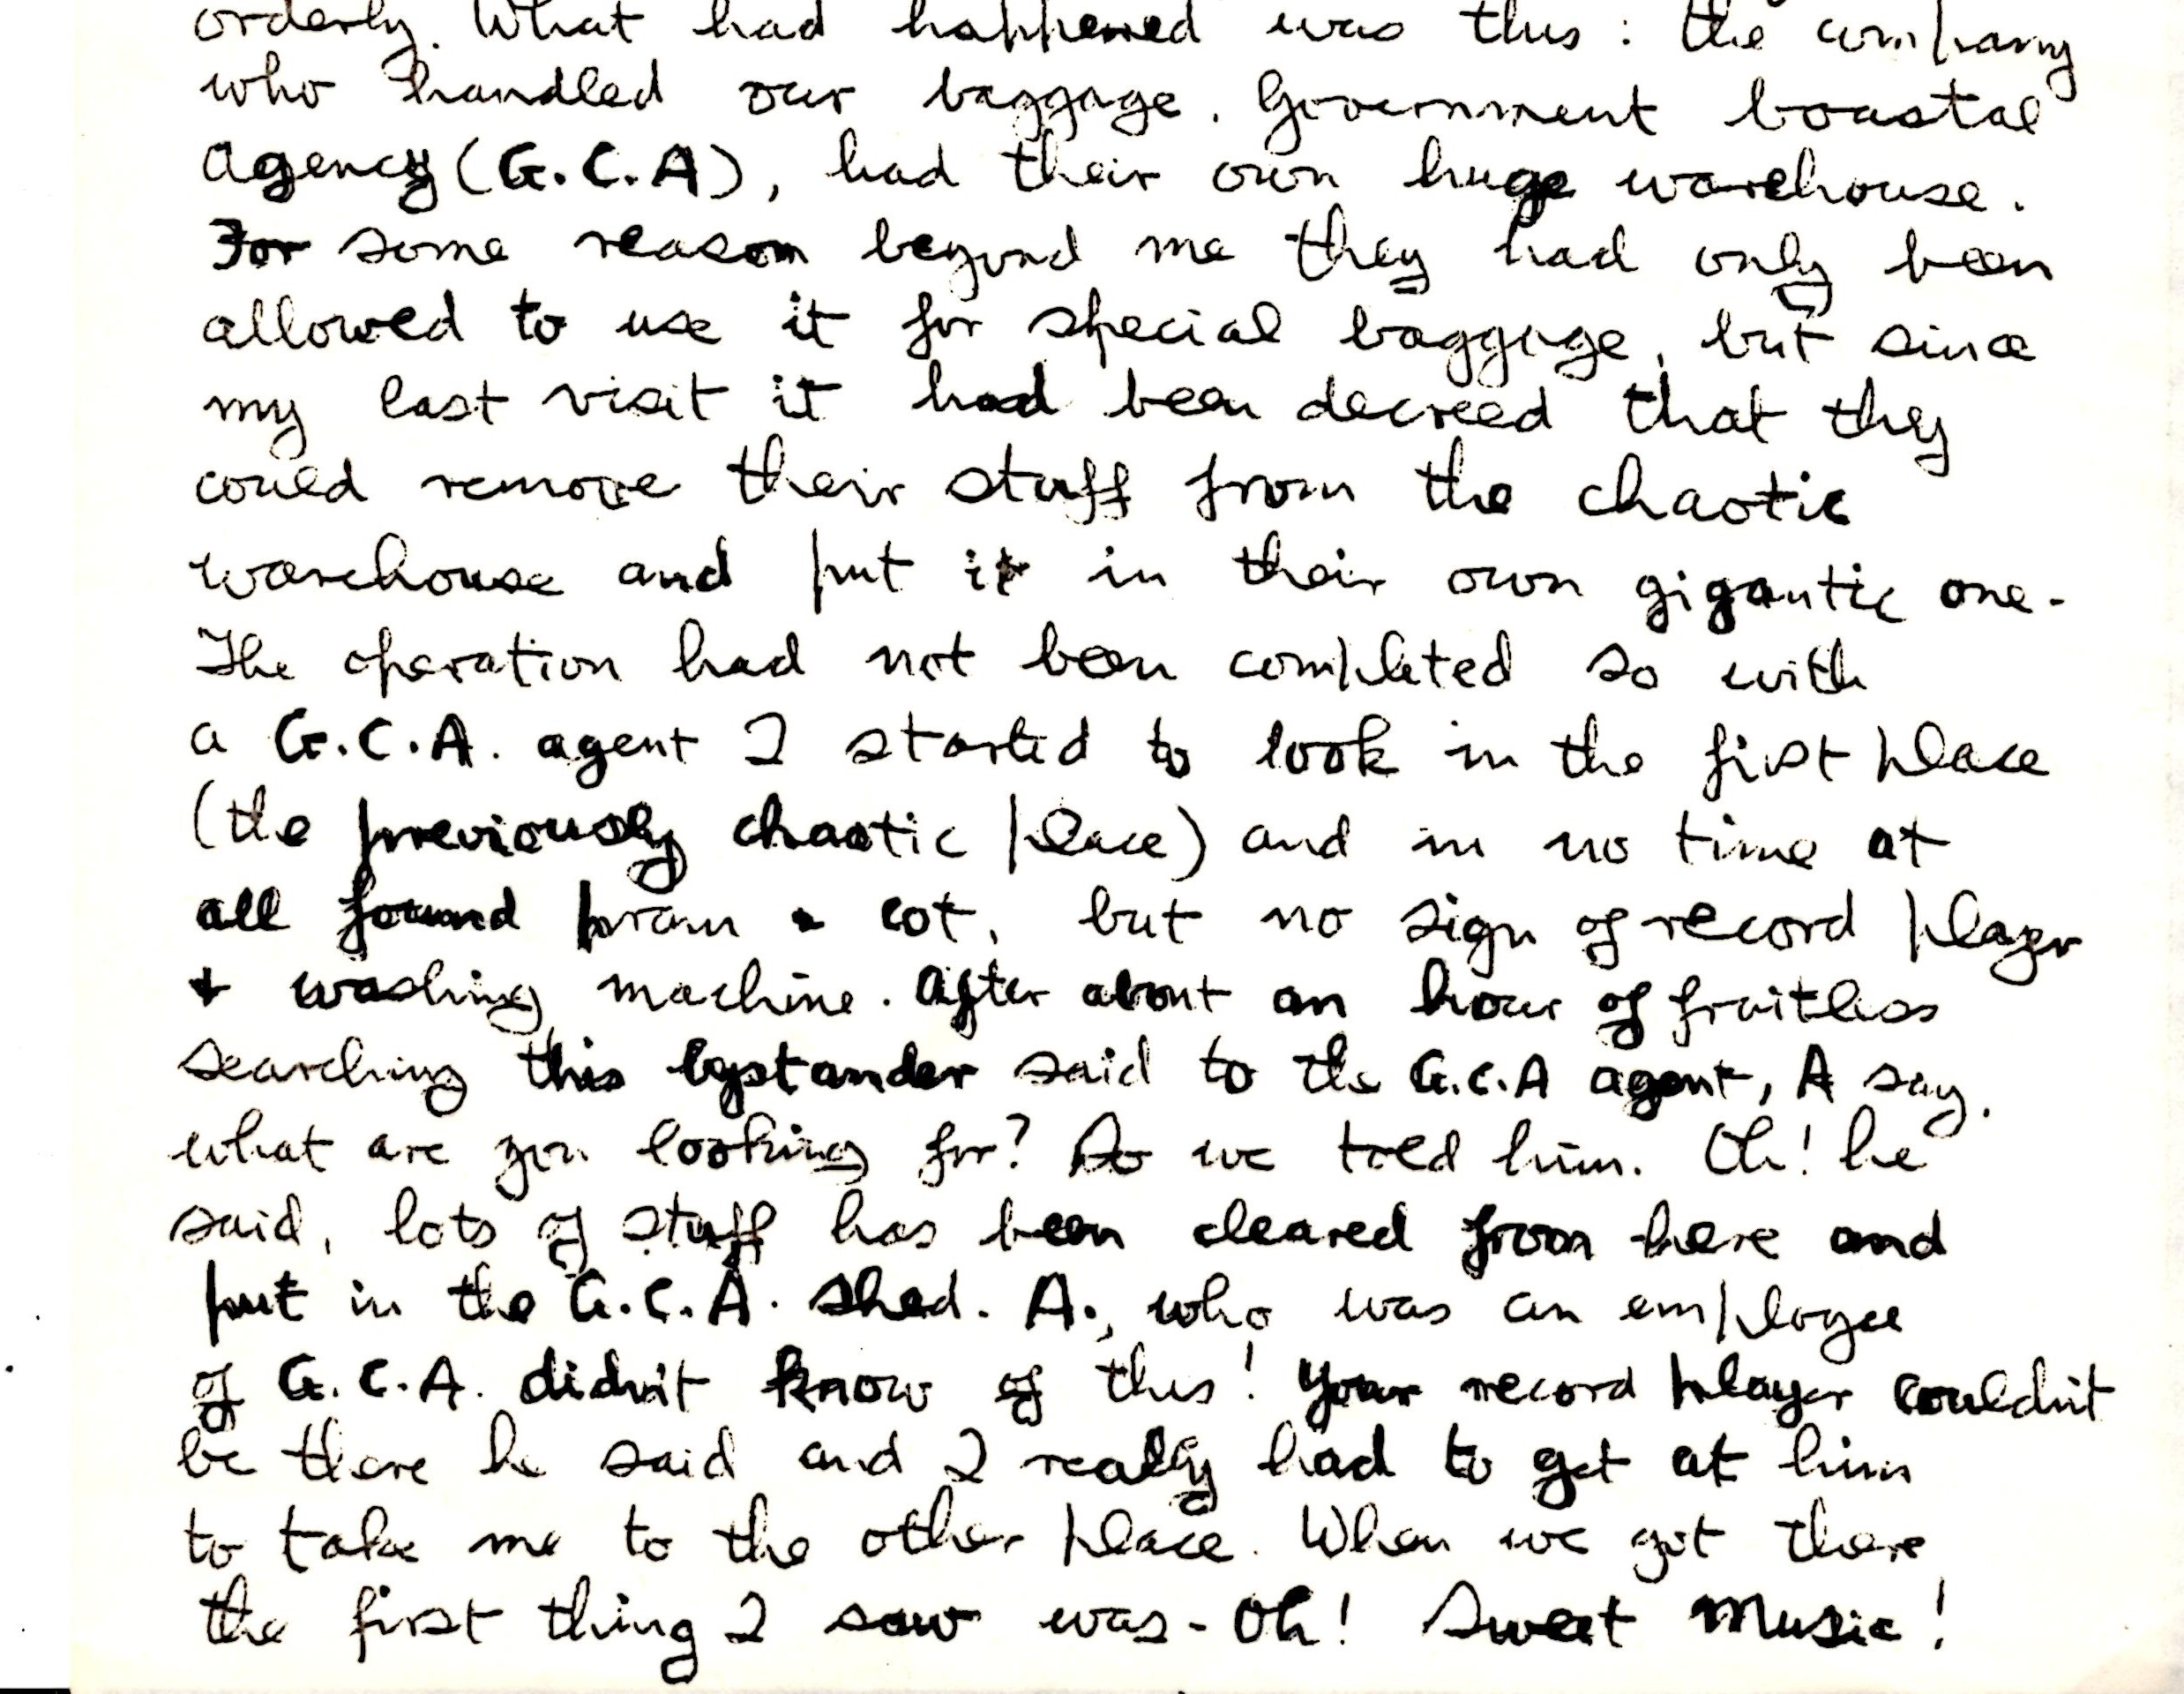 orderly. What had happened was this: the company
who handled our baggage, Government Coastal
Agency (G.C.A), had their own huge warehouse.
For some reason beyond me they had only been
allowed to use it for special baggage, but since
my last visit it had been decreed that they
could remove their stuff from the chaotic
warehouse and put it in their own gigantic one.
The operation had not been completed so with
a G.C.A. agent I started to look in the first place
(the previously chaotic place) and in no time at
all found pram & cot, but no sign of record player
& washing machine. After about an hour of fruitless
searching this bystander said to the G.C.A agent, A say,
what are you looking for? So we told him. Oh! he
said, lots of stuff has been cleared from here and
put in the G.C.A. shed. A., who was an employee
of G.C.A. didn't know of this! Your record player couldn't
be there he said and I really had to get at him
to take me to the other place. When we got there
the first thing I saw was - Oh! Sweet Music!